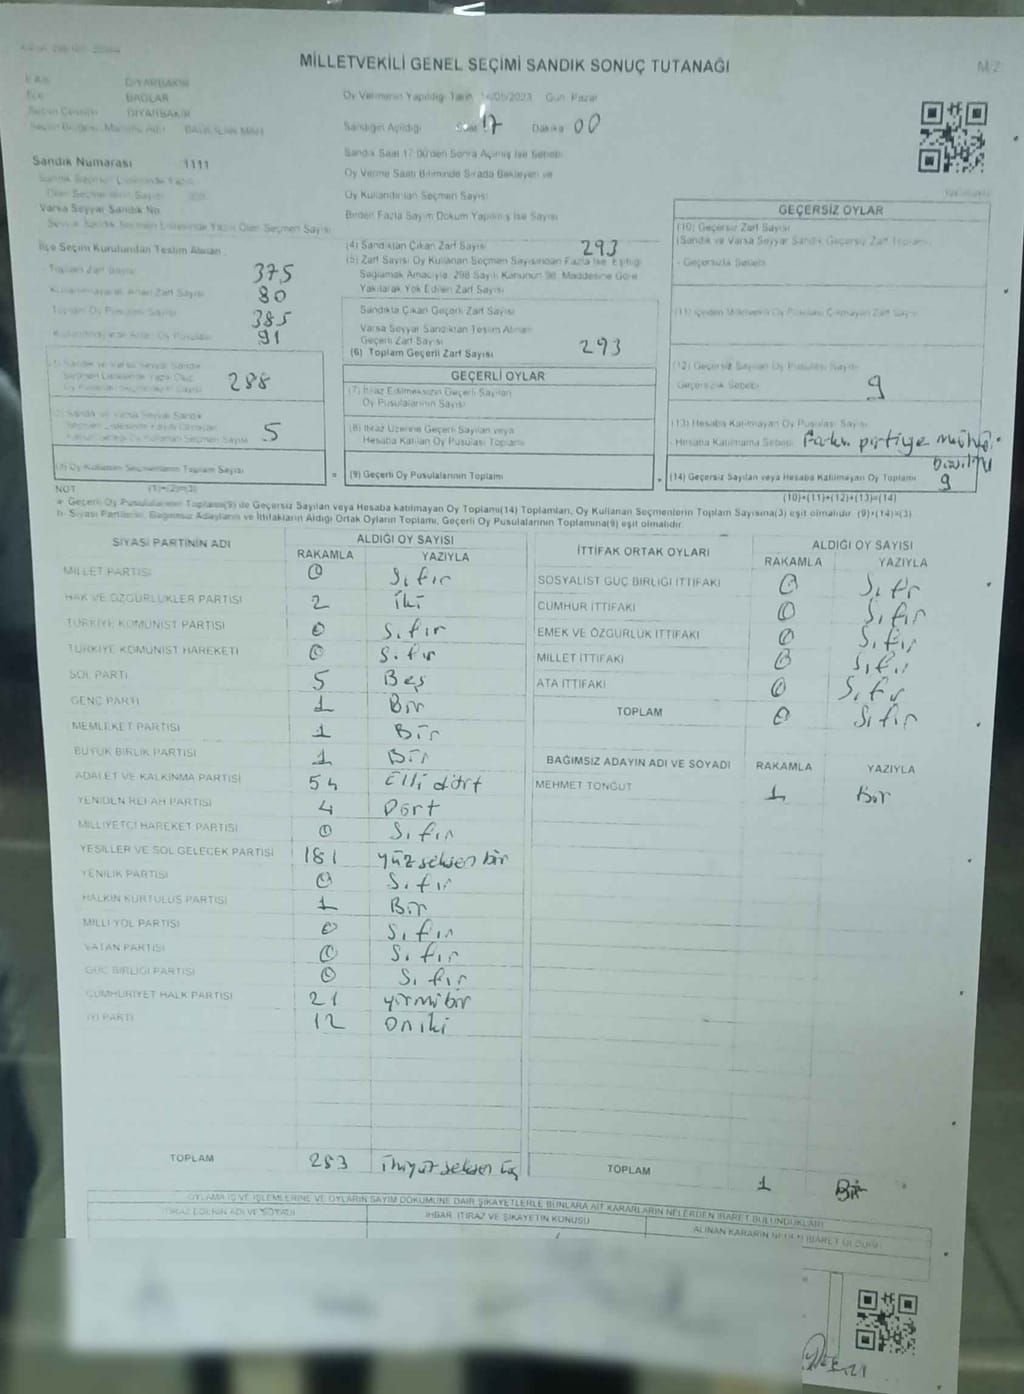 MİLLETVEKİLİ GENEL SEÇİMİ SANDIK SONUÇ TUTANAĞI
DİYARBAKIR
BAĞLAR
DİYARBAKIR
Oy Vermenin Yapıldığı Tarih 14/05/2023 Gün Pazar
Sandığın Açıldığı Saat 17 Dakika 00
Sandık Numarası 1111
Sandık Saat 17.00'den Sonra Açılmış İse Sebebi
Oy Verme Saati Bitiminde Sırada Bekleyen ve
Oy Kullandırılan Seçmen Sayısı
Birden Fazla Sayım Döküm Yapılmış İse Sayısı
Varsa Seyyar Sandık No
İlçe Seçim Kurulundan Teslim Alınan
Toplam Zarf Sayısı 375
Kullanılmayarak Artan Zarf Sayısı 80
Toplam Oy Pusulası Sayısı 385
91
288
5
(3) Oy Kullanan Seçmenlerin Toplam Sayısı
(1)+(2)=(3)
(4) Sandıktan Çıkan Zarf Sayısı 293
(5) Zarf Sayısı Oy Kullanan Seçmen Sayısından Fazla İse, Eşitliği
Sağlamak Amacıyla, 298 Sayılı Kanunun 98. Maddesine Göre
Yakılarak Yok Edilen Zarf Sayısı
Sandıkta Çıkan Geçerli Zarf Sayısı
Varsa Seyyar Sandıktan Teslim Alınan
Geçerli Zarf Sayısı
(6) Toplam Geçerli Zarf Sayısı 293
GEÇERLİ OYLAR
(7) İtiraz Edilmeksizin Geçerli Sayılan
Oy Pusulalarının Sayısı
(8) İtiraz Üzerine Geçerli Sayılan veya
Hesaba Katılan Oy Pusulası Toplamı
= (9) Geçerli Oy Pusulalarının Toplamı
GEÇERSİZ OYLAR
(10) Geçersiz Zarf Sayısı
(Sandık ve Varsa Seyyar Sandık Geçersiz Zarf Toplamı)
(12) Geçersiz Sayılan Oy Pusulası Sayısı
Geçersizlik Sebebi 9
(13) Hesaba Katılmayan Oy Pusulası Sayısı
Hesaba Katılmama Sebebi Farklı partiye mühür
+ (14) Geçersiz Sayılan veya Hesaba Katılmayan Oy Toplamı 9
(10)+(11)+(12)+(13)=(14)
NOT
a- Geçerli Oy Pusulalarının Toplamı(9) ile Geçersiz Sayılan veya Hesaba katılmayan Oy Toplamı(14) Toplamları, Oy Kullanan Seçmenlerin Toplam Sayısına(3) eşit olmalıdır. (9)+(14)=(3)
b- Siyasi Partilerin, Bağımsız Adayların ve İttifakların Aldığı Ortak Oyların Toplamı, Geçerli Oy Pusulalarının Toplamına(9) eşit olmalıdır.
SİYASİ PARTİNİN ADI ALDIĞI OY SAYISI
RAKAMLA YAZIYLA
MİLLET PARTİSİ 0 Sıfır
HAK VE ÖZGÜRLÜKLER PARTİSİ 2 İki
TÜRKİYE KOMÜNİST PARTİSİ 0 Sıfır
TÜRKİYE KOMÜNİST HAREKETİ 0 Sıfır
SOL PARTİ 5 Beş
GENÇ PARTİ 1 Bir
MEMLEKET PARTİSİ 1 Bir
BÜYÜK BİRLİK PARTİSİ 1 Bir
ADALET VE KALKINMA PARTİSİ 54 Elli dört
YENİDEN REFAH PARTİSİ 4 Dört
MİLLİYETÇİ HAREKET PARTİSİ 0 Sıfır
YEŞİLLER VE SOL GELECEK PARTİSİ 181 yüz seksen bir
YENİLİK PARTİSİ 0 Sıfır
HALKIN KURTULUŞ PARTİSİ 1 Bir
MİLLİ YOL PARTİSİ 0 Sıfır
VATAN PARTİSİ 0 Sıfır
GÜÇ BİRLİĞİ PARTİSİ 0 Sıfır
CUMHURİYET HALK PARTİSİ 21 yirmi bir
İYİ PARTİ 12 on iki
TOPLAM 283 ikiyüz seksen üç
İTTİFAK ORTAK OYLARI ALDIĞI OY SAYISI
RAKAMLA YAZIYLA
SOSYALİST GÜÇ BİRLİĞİ İTTİFAKI 0 Sıfır
CUMHUR İTTİFAKI 0 Sıfır
EMEK VE ÖZGÜRLÜK İTTİFAKI 0 Sıfır
MİLLET İTTİFAKI 0 Sıfır
ATA İTTİFAKI 0 Sıfır
TOPLAM 0 Sıfır
BAĞIMSIZ ADAYIN ADI VE SOYADI RAKAMLA YAZIYLA
MEHMET TONĞUT 1 Bir
TOPLAM 1 Bir
OYLAMA İŞ VE İŞLEMLERİNE VE OYLARIN SAYIM DÖKÜMÜNE DAİR ŞİKAYETLERLE BUNLARA AİT KARARLARIN NELERDEN İBARET BULUNDUKLARI
İTİRAZ EDENİN ADI VE SOYADI İHBAR, İTİRAZ VE ŞİKAYETİN KONUSU ALINAN KARARIN NEDEN İBARET OLDUĞU